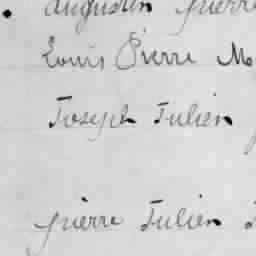 augustin pierre
Louis Pierre M
Joseph Julien
pierre Julien